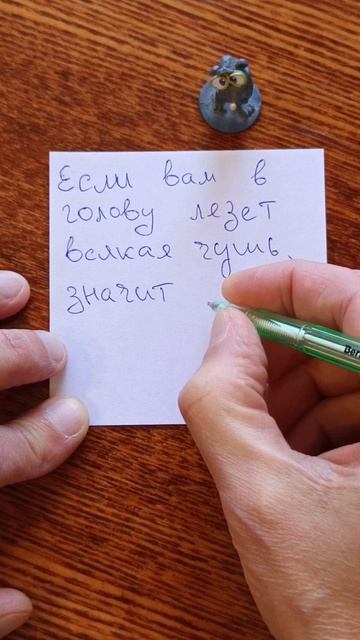 Если вам в
голову лезет
всякая чушь,
значит
Ber